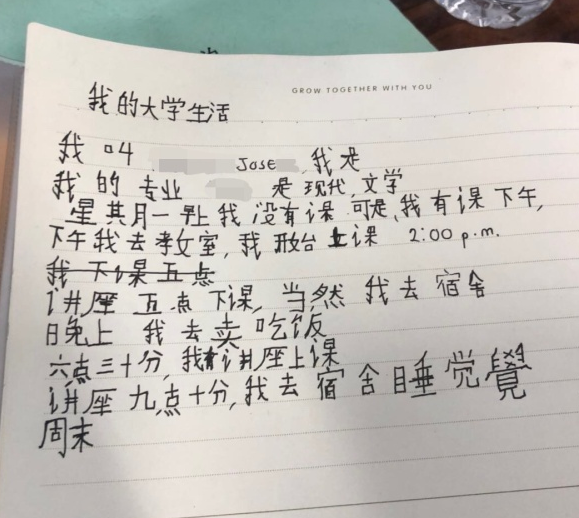 GROW TOGETHER WITH YOU
我的大学生活
我叫 Jose, 我是
我的专业 是现代,文学
星其月一早上我没有课 可是,我有课下午,
下午我去教室,我开始上课 2:00 p.m.
我下课五点
讲座五点下课,当然我去宿舍
晚上 我去卖吃饭
六点三十分,我有讲座上课
讲座九点十分,我去宿舍睡觉覺
周末